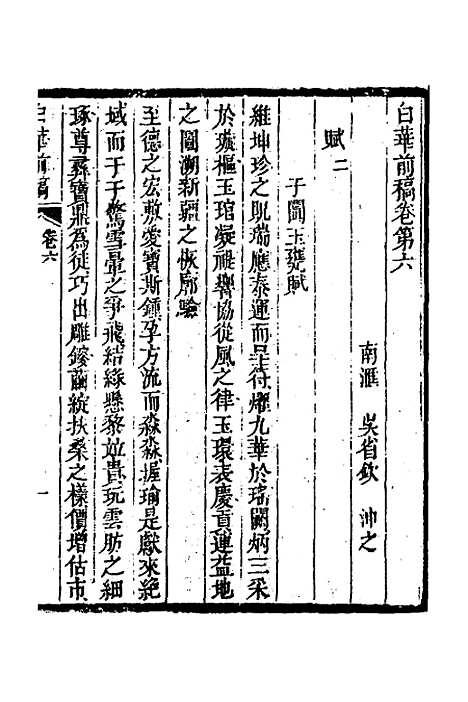 白華前稿卷第六
南滙 吳省欽 沖之
賦二
于闐玉甕賦
維坤珍之貺瑞應泰運而呈符燿九華於瑤闕炳三采
於璇樞玉琯凝禔響協從風之律玉環表慶貢連益地
之圖溯新疆之恢廓驗
至德之宏敷爰寶斯鍾孕方流而淼淼握瑜是獻來絶
域而于于驚雪暈之爭飛結緣懸黎竝貴玩雲肪之細
琢尊彝寶鼎為徒巧出雕鎪繭綻扶桑之樣價增估市
白華前稿 卷六 一